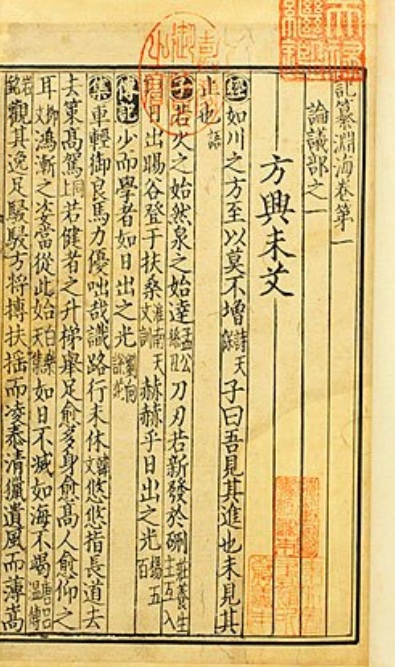 記纂淵海卷第一
論議部之一
方興未艾
經如川之方至以莫不增詩天保子曰吾見其進也未見其
止也語
子若火之始然泉之始達孟公孫丑刀刃若新發於硎莊養生主互入
日出暘谷登于扶桑淮南天文訓赫赫乎日出之光揚五百
傳記少而學者如日出之光劉向說苑
集車輕御良馬力優咄哉識路行未休韓文悠悠指長道去
去策高駕上同若健者之升梯舉足愈多身愈高人愈仰之
耳柳文鴻漸之姿當從此始白樂天集如日不滅如海不竭唐呂溫傳
岩銘觀其逸足駸駸方將摶扶搖而凌泰清獵遺風而薄嵩